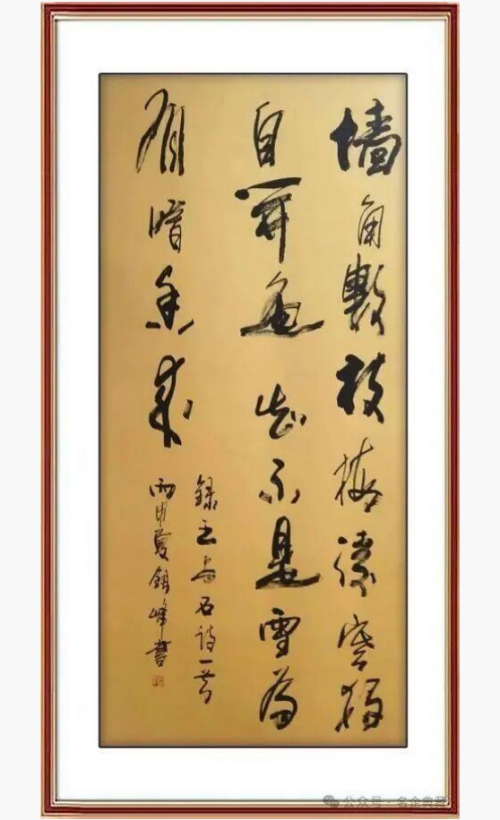 墙角數枝梅凌寒獨
自开遥知不是雪為
有暗香来
録王安石詩一首
丙申夏峰書
公众号·名企典藏